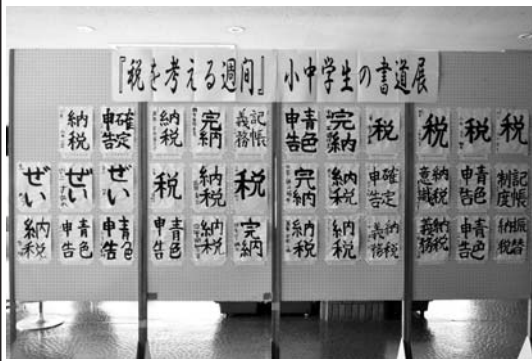 『税を考える週間』 小中学生の書道展
納税 確定申告 納税 完納 記帳義務 青色申告 完納 税 税 税 税
ぜい ぜい ぜい 税 納税 税 完納 納税 確定申告 納税意識 青色申告 記帳制度
納税 青色申告 青色申告 青色申告 納税 完納 納税 納税 納税義務 納税義務 青色申告 振替納税